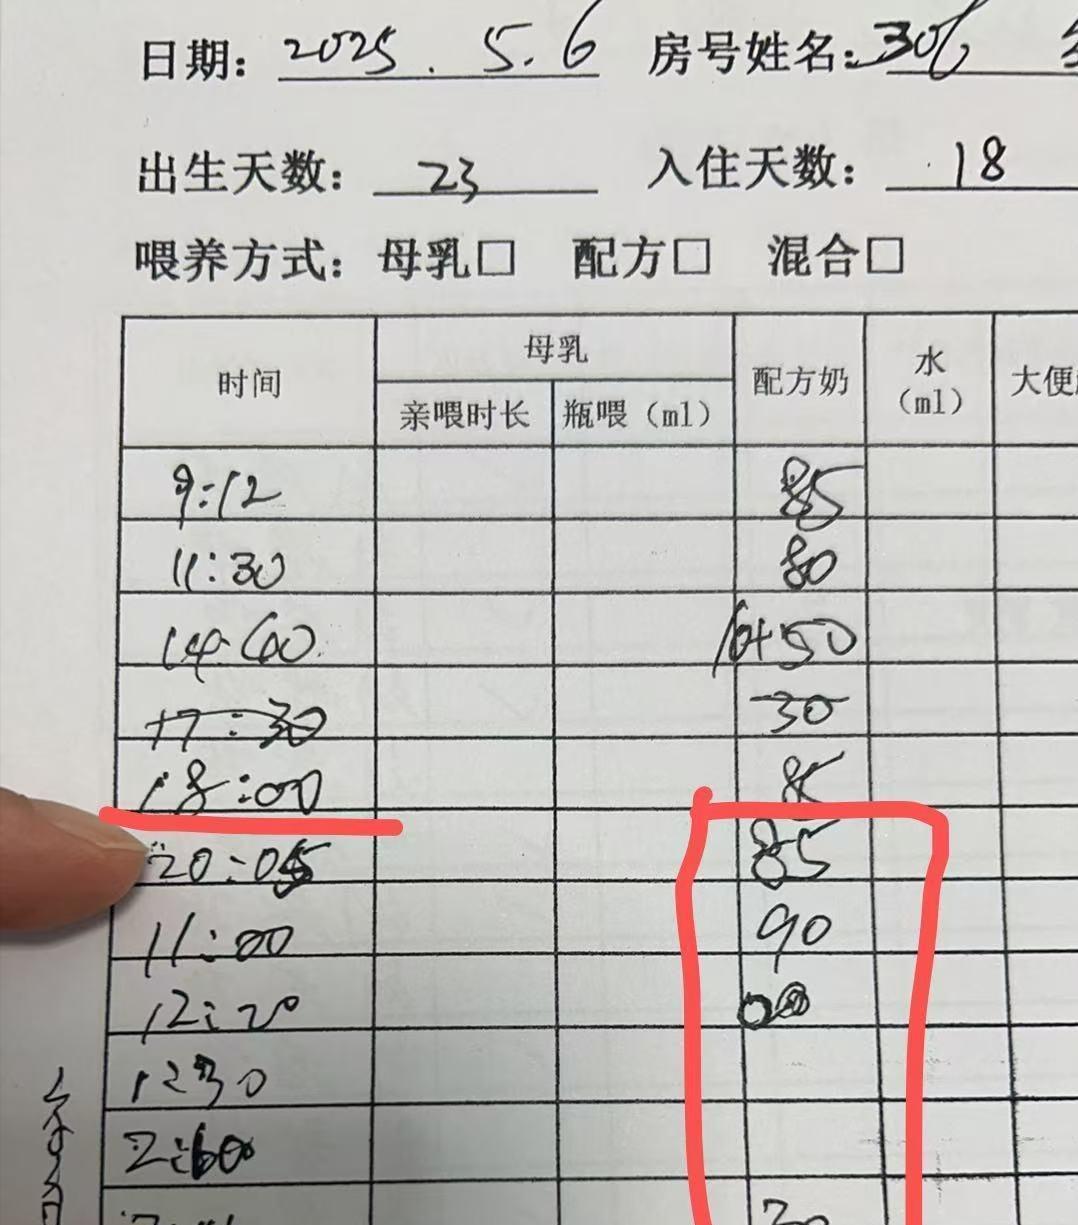 日期: 2025.5.6 房号姓名: 306
出生天数: 23 入住天数: 18
喂养方式: 母乳□ 配方□ 混合□
时间 母乳 配方奶 水（ml） 大便
亲喂时长 瓶喂（ml）
9:12 85
11:30 80
14:60 50
17:30 30
18:00
20:05 85
11:00 90
12:20
12 30
2: